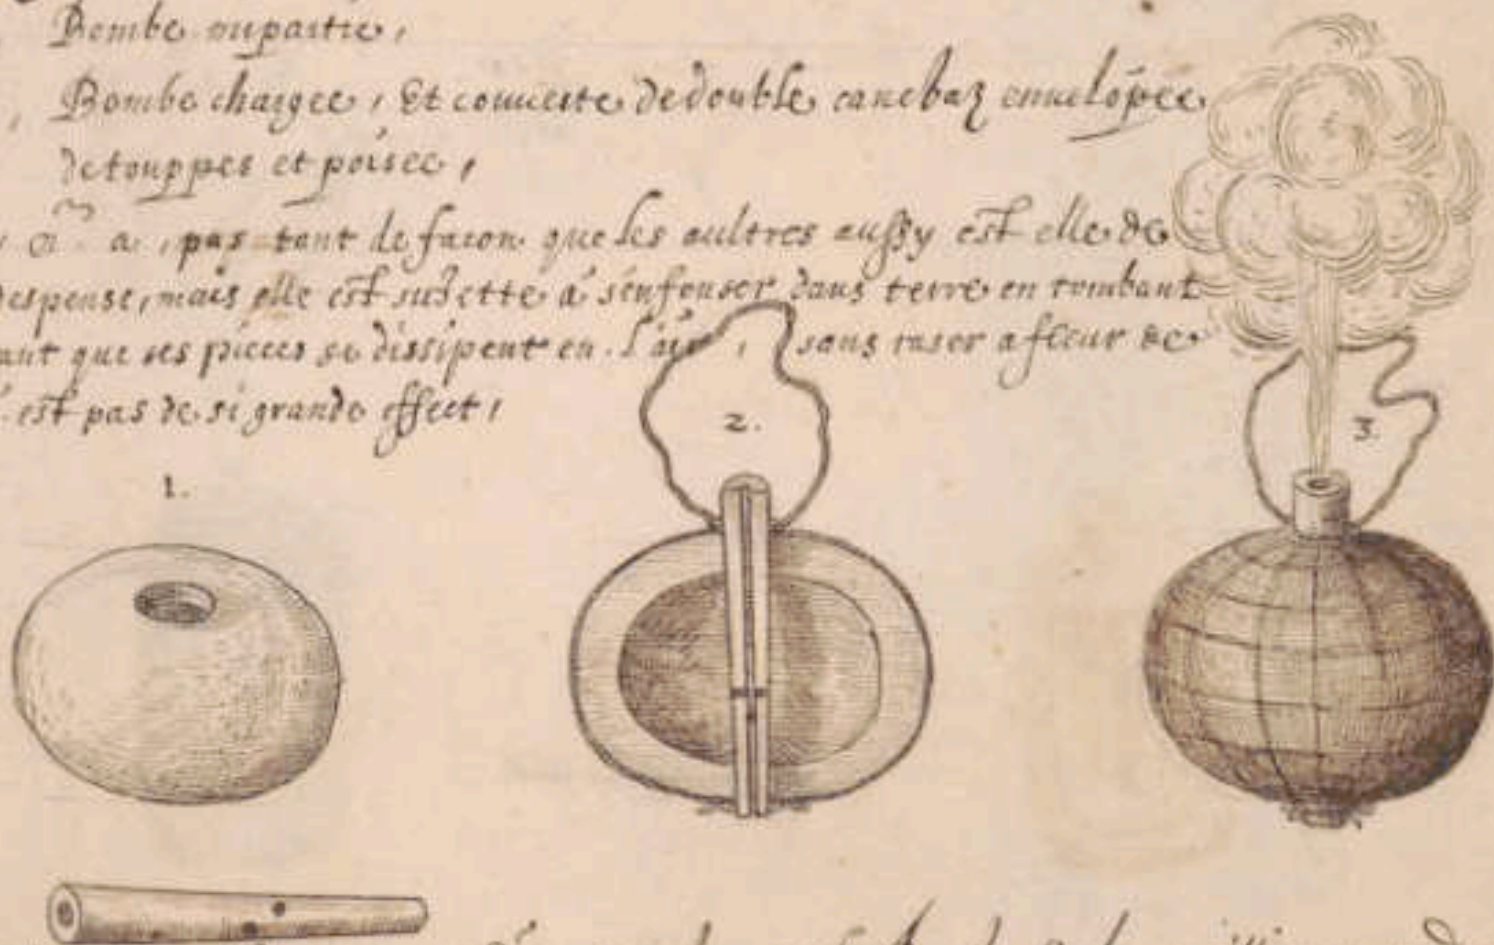 Bombe mipartie,
Bombe chargee, Et couuerte de double canebaz enuelopée
detouppes et poisee,
a, pas tant de facon que les aultres aussy est elle de
despense, mais elle est subiette a s'enfonser dans terre en tombant
que ses pieces se dissipent en l'air, sans raser a fleur de
est pas de si grande effect,
1.
2.
3.